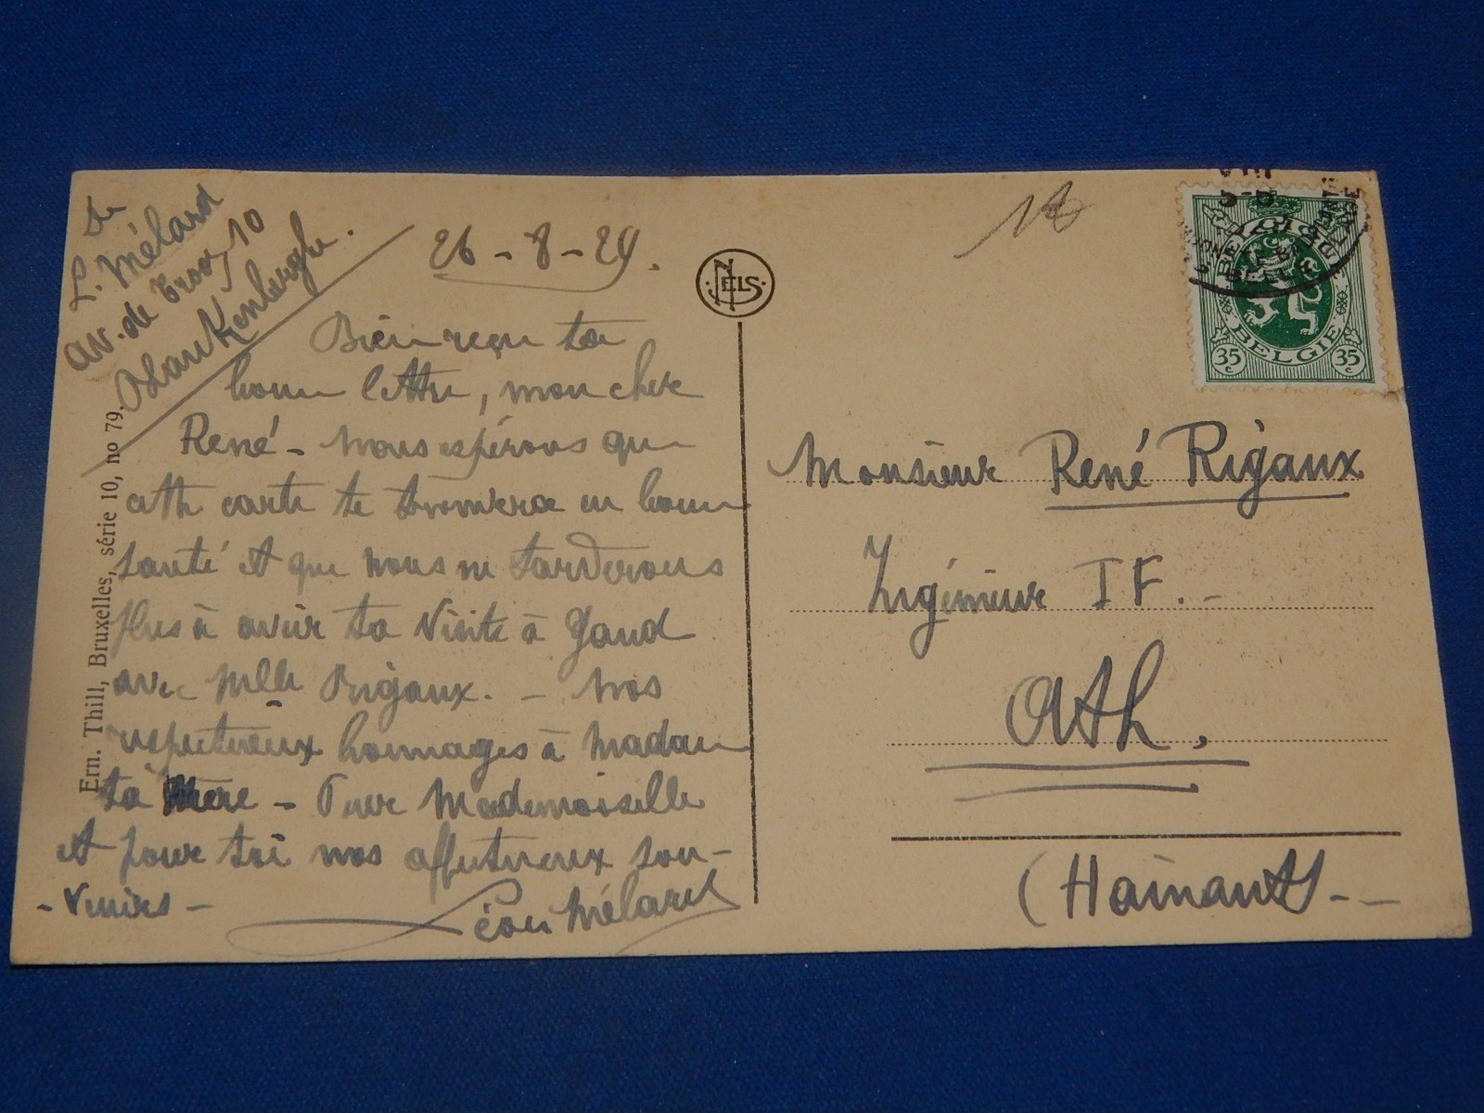 De
L. Mélard
av. de Trooz, 10
Blankenberghe.
26-8-29.
Bien reçu ta
bonne lettre, mon cher
René - Nous espérons que
cette carte te trouvera en bonne
santé et que nous ne tarderons
plus à avoir ta visite à Gand
avec Melle Rigaux. - Nos
respectueux hommages à Madame
ta Mère - Pour Mademoiselle
et pour toi nos affectueux sou-
-venirs -
Léon Mélard
Ern. Thill, Bruxelles, série 10, no 79.
NELS
BELGIE
35 c
35 c
Monsieur René Rigaux
Ingénieur I F. -
Ath.
(Hainaut) --